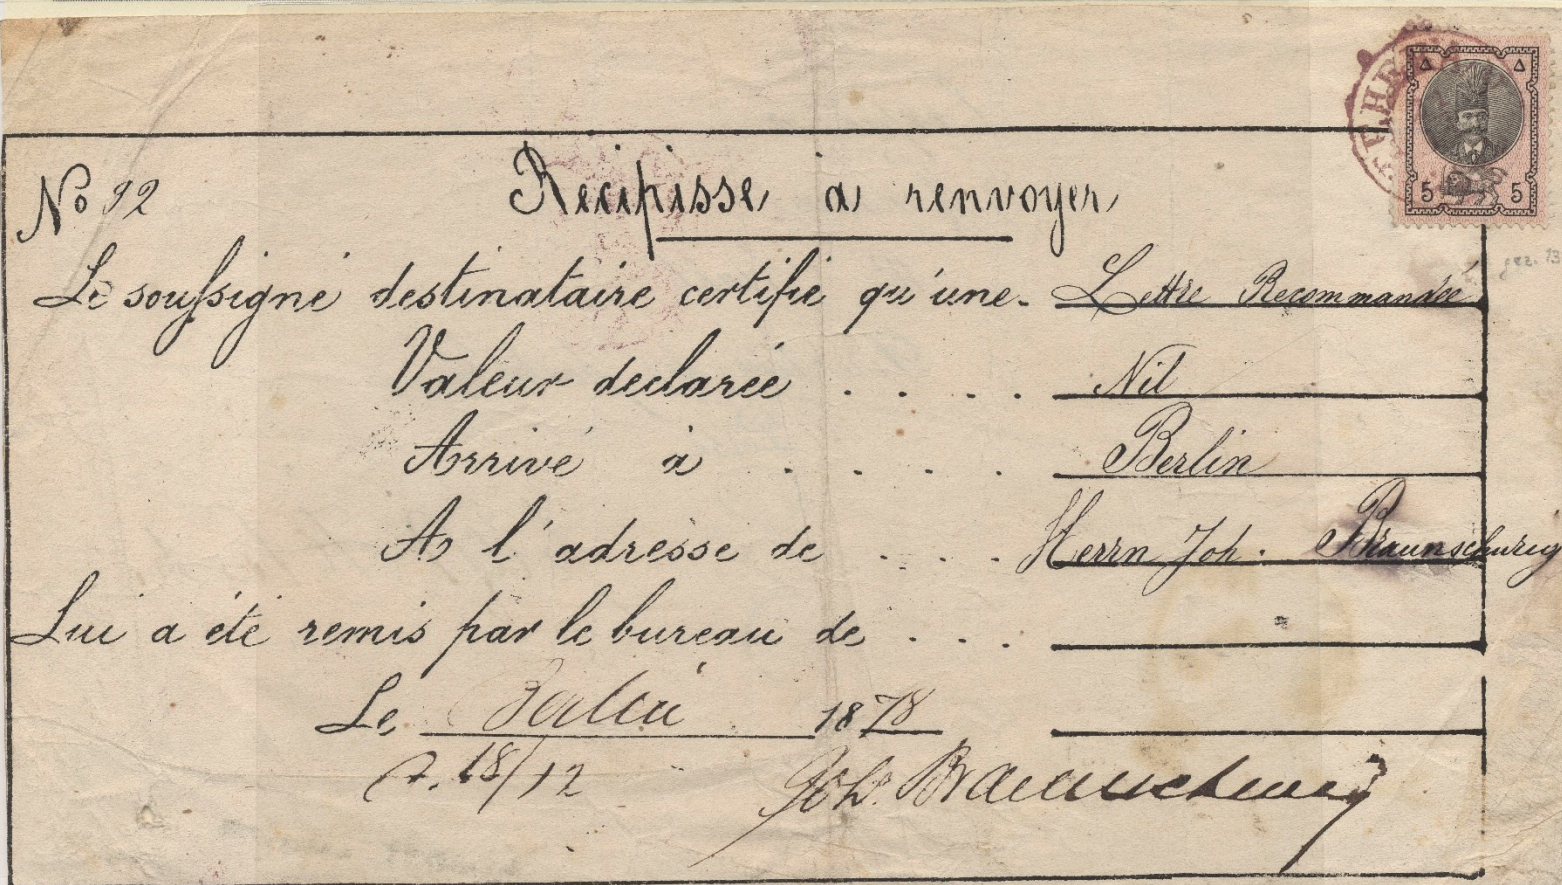 TEHERAN
5 5
No 92
Récipisse à renvoyer
Le soussigné destinataire certifie qu'une. Lettre Recommandée
Valeur declarée . . . . Nil
Arrivé à . . . . Berlin
A l'adresse de . . . Herrn Joh. Braunschweig
Lui a été remis par le bureau de . . .
Le Berlin 1878
d. 18/12 Joh. Braunschweig